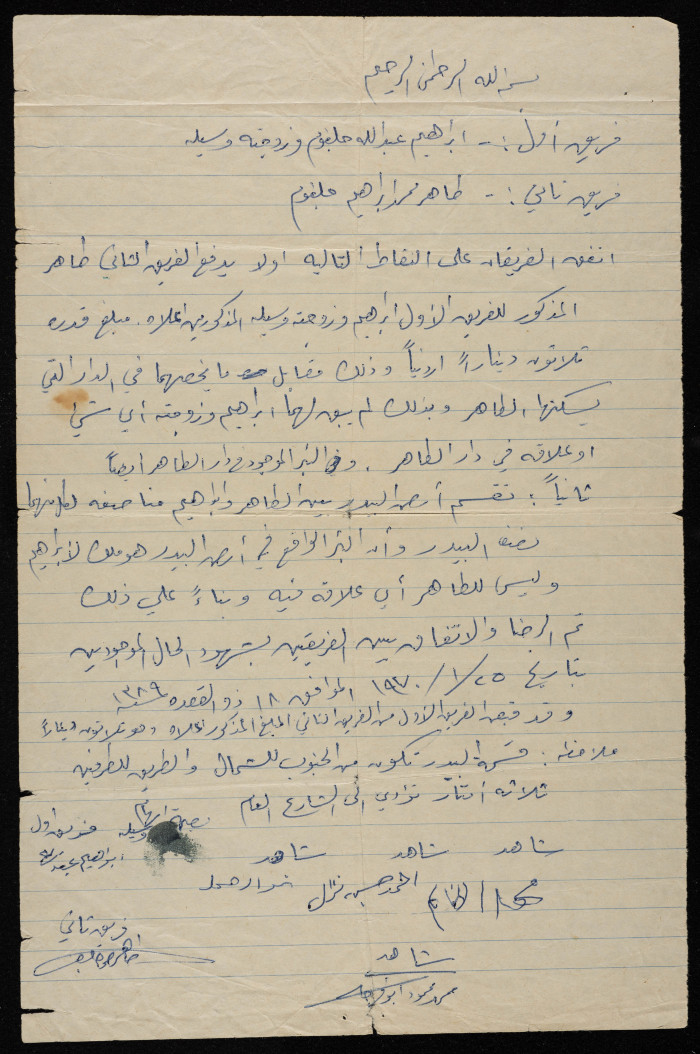 بسم الله الرحمن الرحيم
فريق أول :- ابراهيم عبدالله حلقوم وزوجته وسيله
فريق ثاني :- طاهر محمد ابراهيم حلقوم
اتفق الفريقان على النقاط التاليه اولا يدفع الفريق الثاني طاهر
المذكور للفريق الأول ابراهيم وزوجته وسيله المذكورين اعلاه . مبلغ قدره
ثلاثون ديناراً اردنياً وذلك مقابل ما يخصهما في الدار التي
يسكنها الطاهر وبذلك لم يبق لهما ابراهيم وزوجته أي شي
او علاقه في دار الطاهر . وفي البئر الموجود في دار الطاهر ايضاً
ثانياً : تقسم أرض البيدر بين الطاهر وابراهيم مناصفه لكل منهما
نصف البيدر وأن البئر الواقع في أرض البيدر هو ملك لأبراهيم
وليس للطاهر أي علاقه فيه وبناءً علي ذلك
تم الرضا والاتفاق بين الفريقين بشهود الحال الموجودين
بتاريخ ٢٥/ ١/ ١٩٧٠ الموافق ١٨ ذو القعده سنة ١٣٨٩
وقد قبض الفريق الأول من الفريق الثاني المبلغ المذكور اعلاه وهو ثلاثون ديناراً
ملاحظه : قسمة البيدر تكون من الجنوب للشمال والطريق للطرفين
ثلاثه أمتار تؤدي الى الشارع العام
بصمة ابهام وسيله
فريق أول
ابراهيم عبد الله
شاهد شاهد شاهد
فريق ثاني
شاهد
محمد محمود ابو